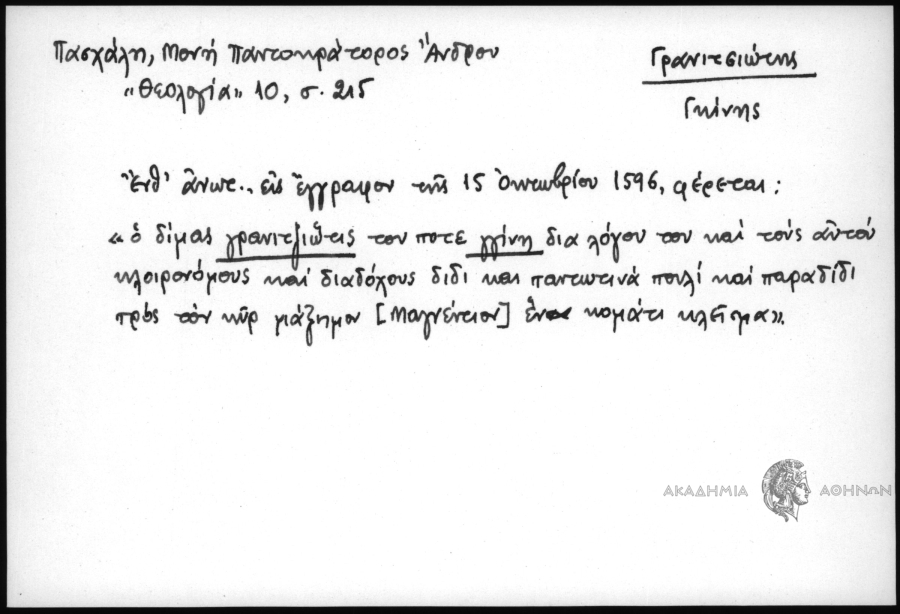 Πασχάλη, Μονή Παντοκράτορος Ἄνδρου
"Θεολογία" 10, σ. 215
Γρανιτσιώτης
Γκίνης
Ἔνθ' ἄνωτ., εἰς ἔγγραφον τῆς 15 Ὀκτωβρίου 1596, φέρεται:
«ὁ δίμας γρανιτζιῶτις του ποτε γγίνη δια λόγου του καὶ τοὺς αὐτοῦ
κλοιρονόμους καὶ διαδόχους δίδι και παντωτινὰ πουλί καὶ παραδίδι
πρὸς τὸν κῦρ μιάξημον [Μαγνέντιον] ἕνα κομάτι κλεῖσμα».
ΑΚΑΔΗΜΙΑ ΑΘΗΝΩΝ